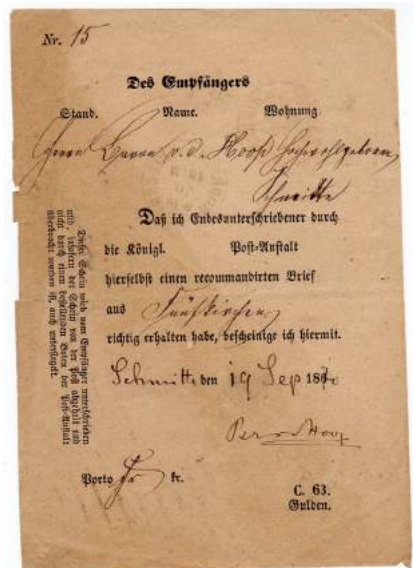 Nr. 15
Des Empfängers
Stand. Name. Wohnung
Herrn Baron v. d. Hoop Hochwohlgeboren
Schmitte
Daß ich Endesunterschriebener durch
die Königl. Post-Anstalt
hierselbst einen recommandirten Brief
aus Fünfkirchen
richtig erhalten habe, bescheinige ich hiermit.
Schmitte den 19 Sep 187
Porto fr kr.
C. 63.
Gulden.
Dieser Schein wird vom Empfänger unterschrieben
und, insofern der Schein von der Post abgeholt und
nicht durch einen bestellenden Boten der Post-Anstalt
überbracht worden ist, auch untersiegelt.